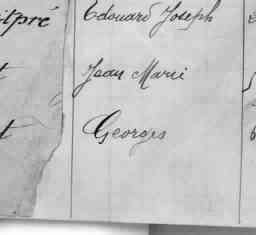 itpré Edouard Joseph
t Jean Marie
t Georges